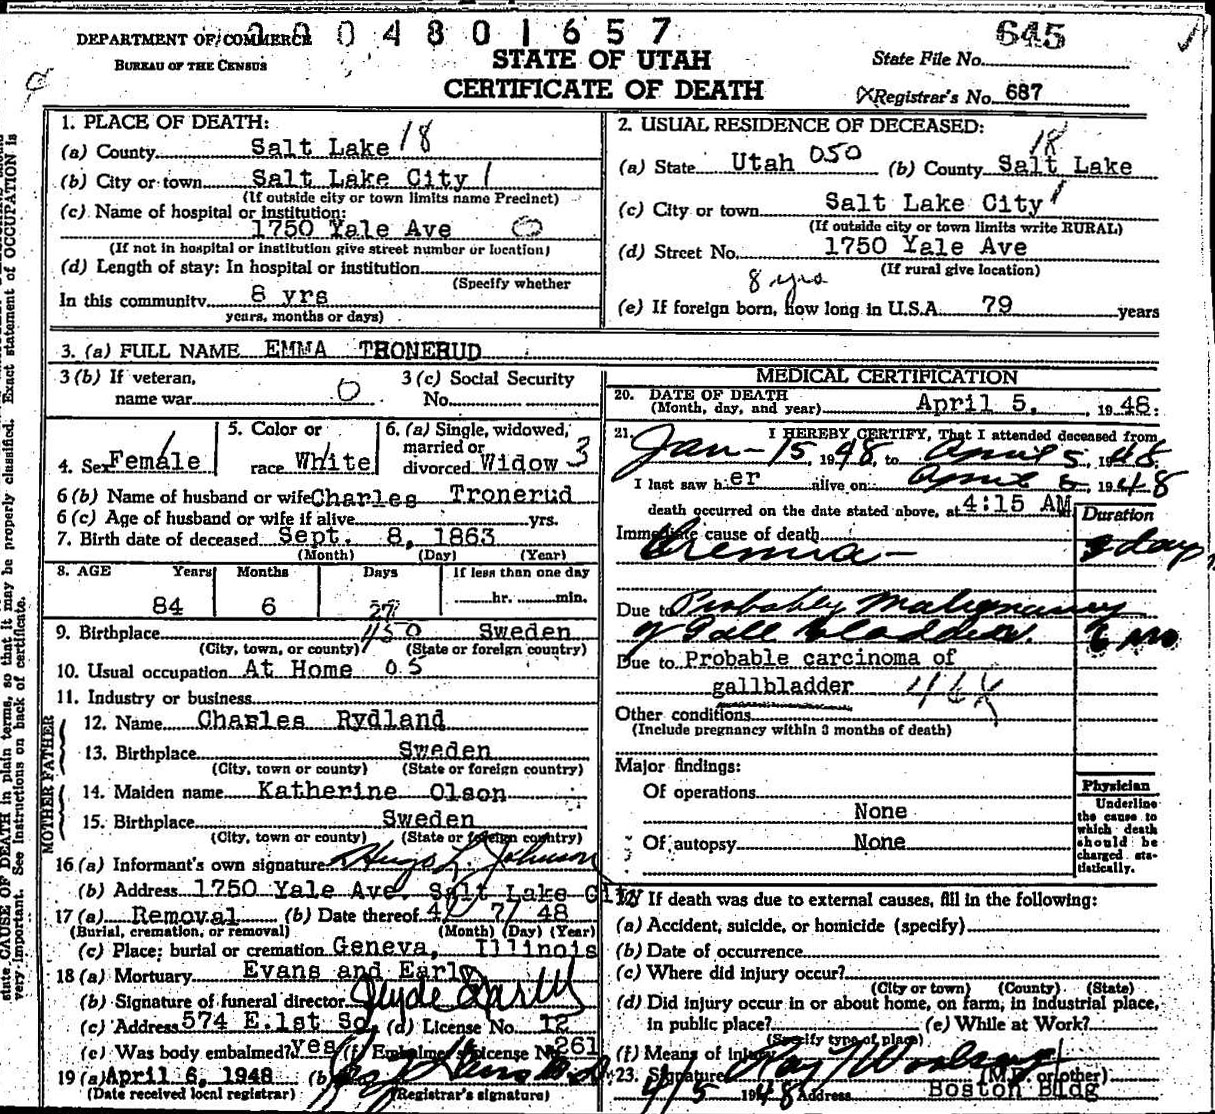 DEPARTMENT OF COMMERCE
BUREAU OF THE CENSUS
0004801657
STATE OF UTAH
CERTIFICATE OF DEATH
State File No. 645
Registrar's No. 687
state CAUSE OF DEATH in plain terms, so that it may be properly classified. Exact statement of OCCUPATION is
very important. See instructions on back of certificate.
1. PLACE OF DEATH:
(a) County Salt Lake 18
(b) City or town Salt Lake City 1
(If outside city or town limits name Precinct)
(c) Name of hospital or institution:
1750 Yale Ave 0
(If not in hospital or institution give street number or location)
(d) Length of stay: In hospital or institution
(Specify whether
In this community 8 yrs
years, months or days)
2. USUAL RESIDENCE OF DECEASED:
18
(a) State Utah 050 (b) County Salt Lake
(c) City or town Salt Lake City 1
(If outside city or town limits write RURAL)
(d) Street No. 1750 Yale Ave
(If rural give location)
8 yrs
(e) If foreign born, how long in U.S.A. 79 years
3. (a) FULL NAME EMMA TRONERUD
3 (b) If veteran, name war 0
3 (c) Social Security No.
4. Sex Female 1
5. Color or race White 1
6. (a) Single, widowed, married or divorced Widow 3
6 (b) Name of husband or wife Charles Tronerud
6 (c) Age of husband or wife if alive yrs.
7. Birth date of deceased Sept. 8, 1863
(Month) (Day) (Year)
8. AGE Years Months Days If less than one day
84 6 27 hr. min.
9. Birthplace 450 Sweden
(City, town, or county) (State or foreign country)
10. Usual occupation At Home 05
11. Industry or business
FATHER
12. Name Charles Rydland
13. Birthplace Sweden
(City, town or county) (State or foreign country)
MOTHER
14. Maiden name Katherine Olson
15. Birthplace Sweden
(City, town or county) (State or foreign country)
16 (a) Informant's own signature Hugo L. Johnson
(b) Address 1750 Yale Ave. Salt Lake City
17 (a) Removal (b) Date thereof 4/ 7/ 48
(Burial, cremation, or removal) (Month) (Day) (Year)
(c) Place; burial or cremation Geneva, Illinois
18 (a) Mortuary Evans and Early
(b) Signature of funeral director Clyde Early
(c) Address 574 E. 1st So. (d) License No. 12
(e) Was body embalmed? Yes (f) Embalmer's License No. 261
19 (a) April 6, 1948 (b)
(Date received local registrar) (Registrar's signature)
MEDICAL CERTIFICATION
20. DATE OF DEATH
(Month, day, and year) April 5, 1948.
21. I HEREBY CERTIFY, That I attended deceased from
Jan - 15, 1948, to April 5, 1948.
I last saw her alive on April 5, 1948
death occurred on the date stated above, at 4:15 AM
Duration
Immediate cause of death
Uremia - days
Due to Probably Malignancy
of Gall bladder. 6 mo
Due to Probable carcinoma of
gallbladder 46X
Other conditions
(Include pregnancy within 3 months of death)
Major findings:
Of operations
None
Of autopsy None
Physician
Underline the cause to which death should be charged statistically.
22. If death was due to external causes, fill in the following:
(a) Accident, suicide, or homicide (specify)
(b) Date of occurrence
(c) Where did injury occur?
(City or town) (County) (State)
(d) Did injury occur in or about home, on farm, in industrial place,
in public place? (e) While at Work?
(Specify type of place)
(f) Means of injury
23. Signature Ray Woolsey
(M.D. or other)
4/5 1948 Address Boston Bldg